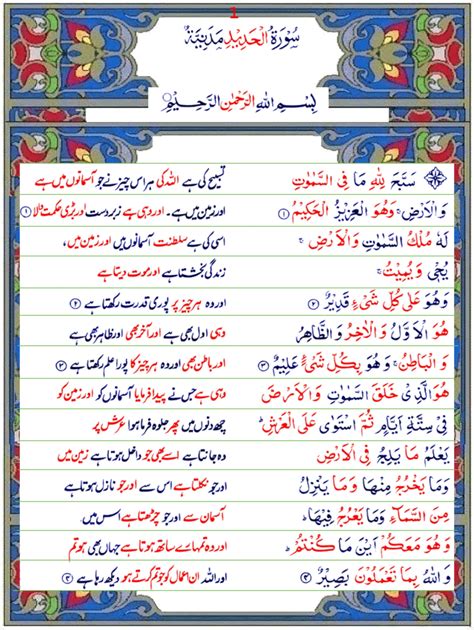 1
سُوۡرَۃُ الۡحَدِیۡدِ مَدَنِیَّۃٌ
بِسۡمِ اللہِ الرَّحۡمٰنِ الرَّحِیۡمِ
سَبَّحَ لِلہِ مَا فِی السَّمٰوٰتِ تسبیح کی ہے اللہ کی ہر اس چیز نے جو آسمانوں میں ہے
وَالۡاَرۡضِ ۚ وَھُوَ الۡعَزِیۡزُ الۡحَکِیۡمُ ۱ اور زمین میں ہے۔ اور وہی ہے زبردست اور بڑی حکمت والا ۱
لَہٗ مُلۡکُ السَّمٰوٰتِ وَالۡاَرۡضِ ۚ اسی کی ہے سلطنت آسمانوں میں اور زمین میں،
یُحۡیٖ وَیُمِیۡتُ ۚ زندگی بخشتا ہے اور موت دیتا ہے
وَھُوَ عَلٰی کُلِّ شَیۡءٍ قَدِیۡرٌ ۲ اور وہ ہر چیز پر پوری قدرت رکھتا ہے ۲
ھُوَ الۡاَوَّلُ وَالۡاٰخِرُ وَالظَّاھِرُ وہی اول بھی ہے اور آخر بھی اور ظاہر بھی ہے
وَالۡبَاطِنُ ۚ وَھُوَ بِکُلِّ شَیۡءٍ عَلِیۡمٌ ۳ اور باطن بھی ہے اور وہ ہر چیز کا پورا علم رکھتا ہے ۳
ھُوَالَّذِیۡ خَلَقَ السَّمٰوٰتِ وَالۡاَرۡضَ وہی ہے جس نے پیدا فرمایا آسمانوں کو اور زمین کو
فِیۡ سِتَّۃِ اَیَّامٍ ثُمَّ اسۡتَوٰی عَلَی الۡعَرۡشِ ؕ چھ دنوں میں پھر جلوہ فرما ہوا عرش پر
یَعۡلَمُ مَا یَلِجُ فِی الۡاَرۡضِ وہ جانتا ہے اسے بھی جو داخل ہوتا ہے زمین میں
وَمَا یَخۡرُجُ مِنۡھَا وَمَا یَنۡزِلُ اور جو نکلتا ہے اس سے اور جو نازل ہوتا ہے
مِنَ السَّمَآءِ وَمَا یَعۡرُجُ فِیۡھَا ؕ آسمان سے اور جو چڑھتا ہے اس میں۔
وَھُوَ مَعَکُمۡ اَیۡنَ مَا کُنۡتُمۡ ؕ اور وہ تمہارے ساتھ ہوتا ہے جہاں بھی ہو تم
وَاللہُ بِمَا تَعۡمَلُوۡنَ بَصِیۡرٌ ۴ اور اللہ ان اعمال کو جو تم کرتے ہو دیکھ رہا ہے ۴